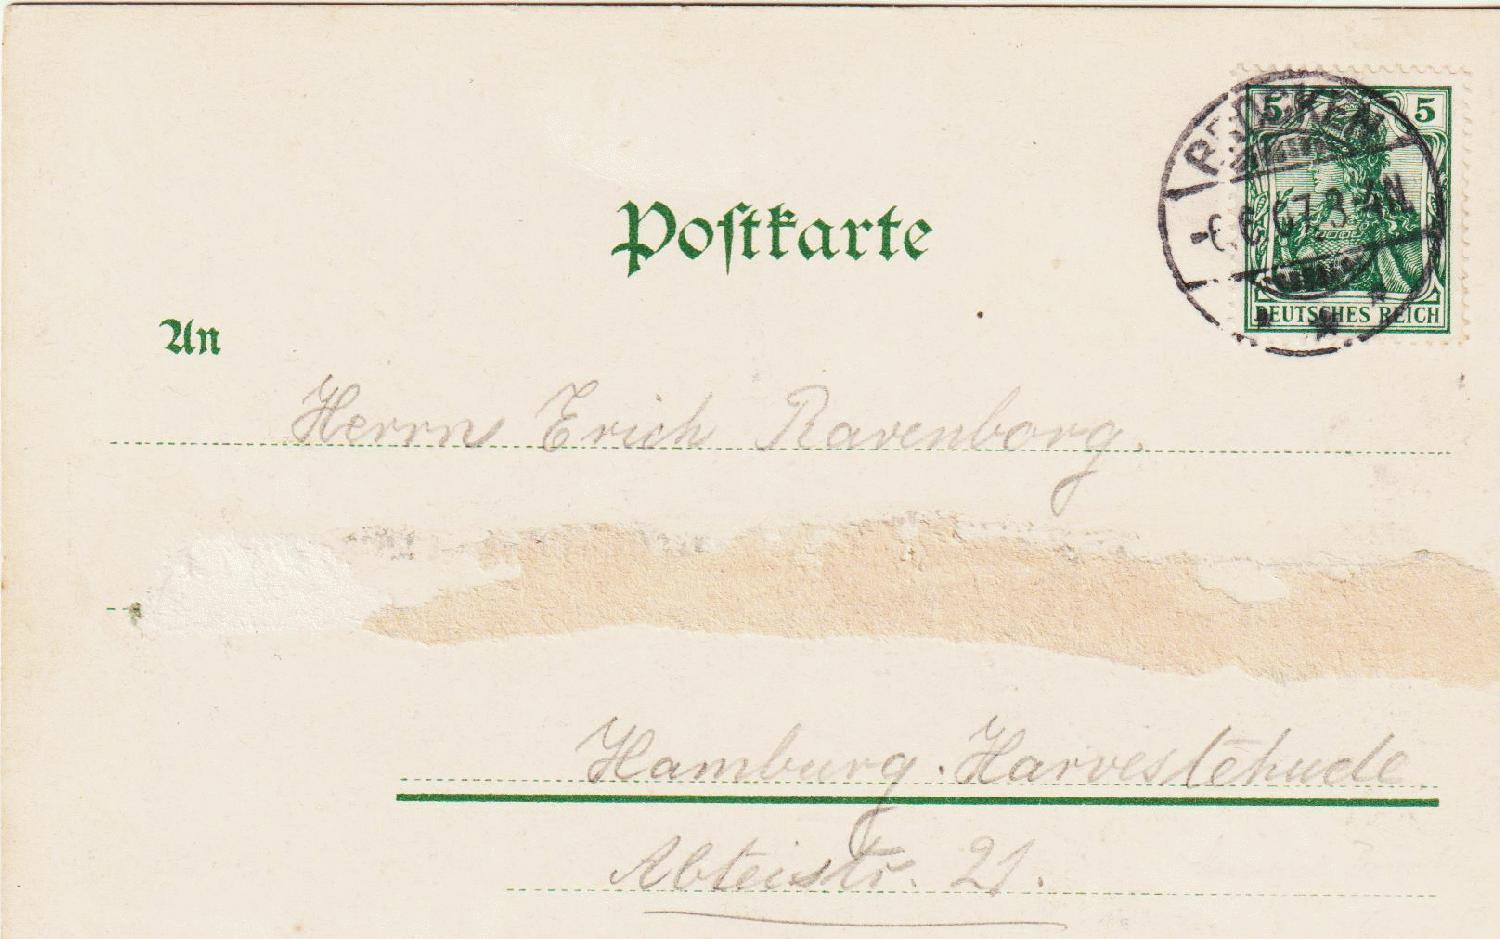 5 5
DEUTSCHES REICH
6.6.07.3-4N
Postkarte
An
Herrn Erich Ravenborg.
Hamburg. Harvestehude
Abteistr. 21.